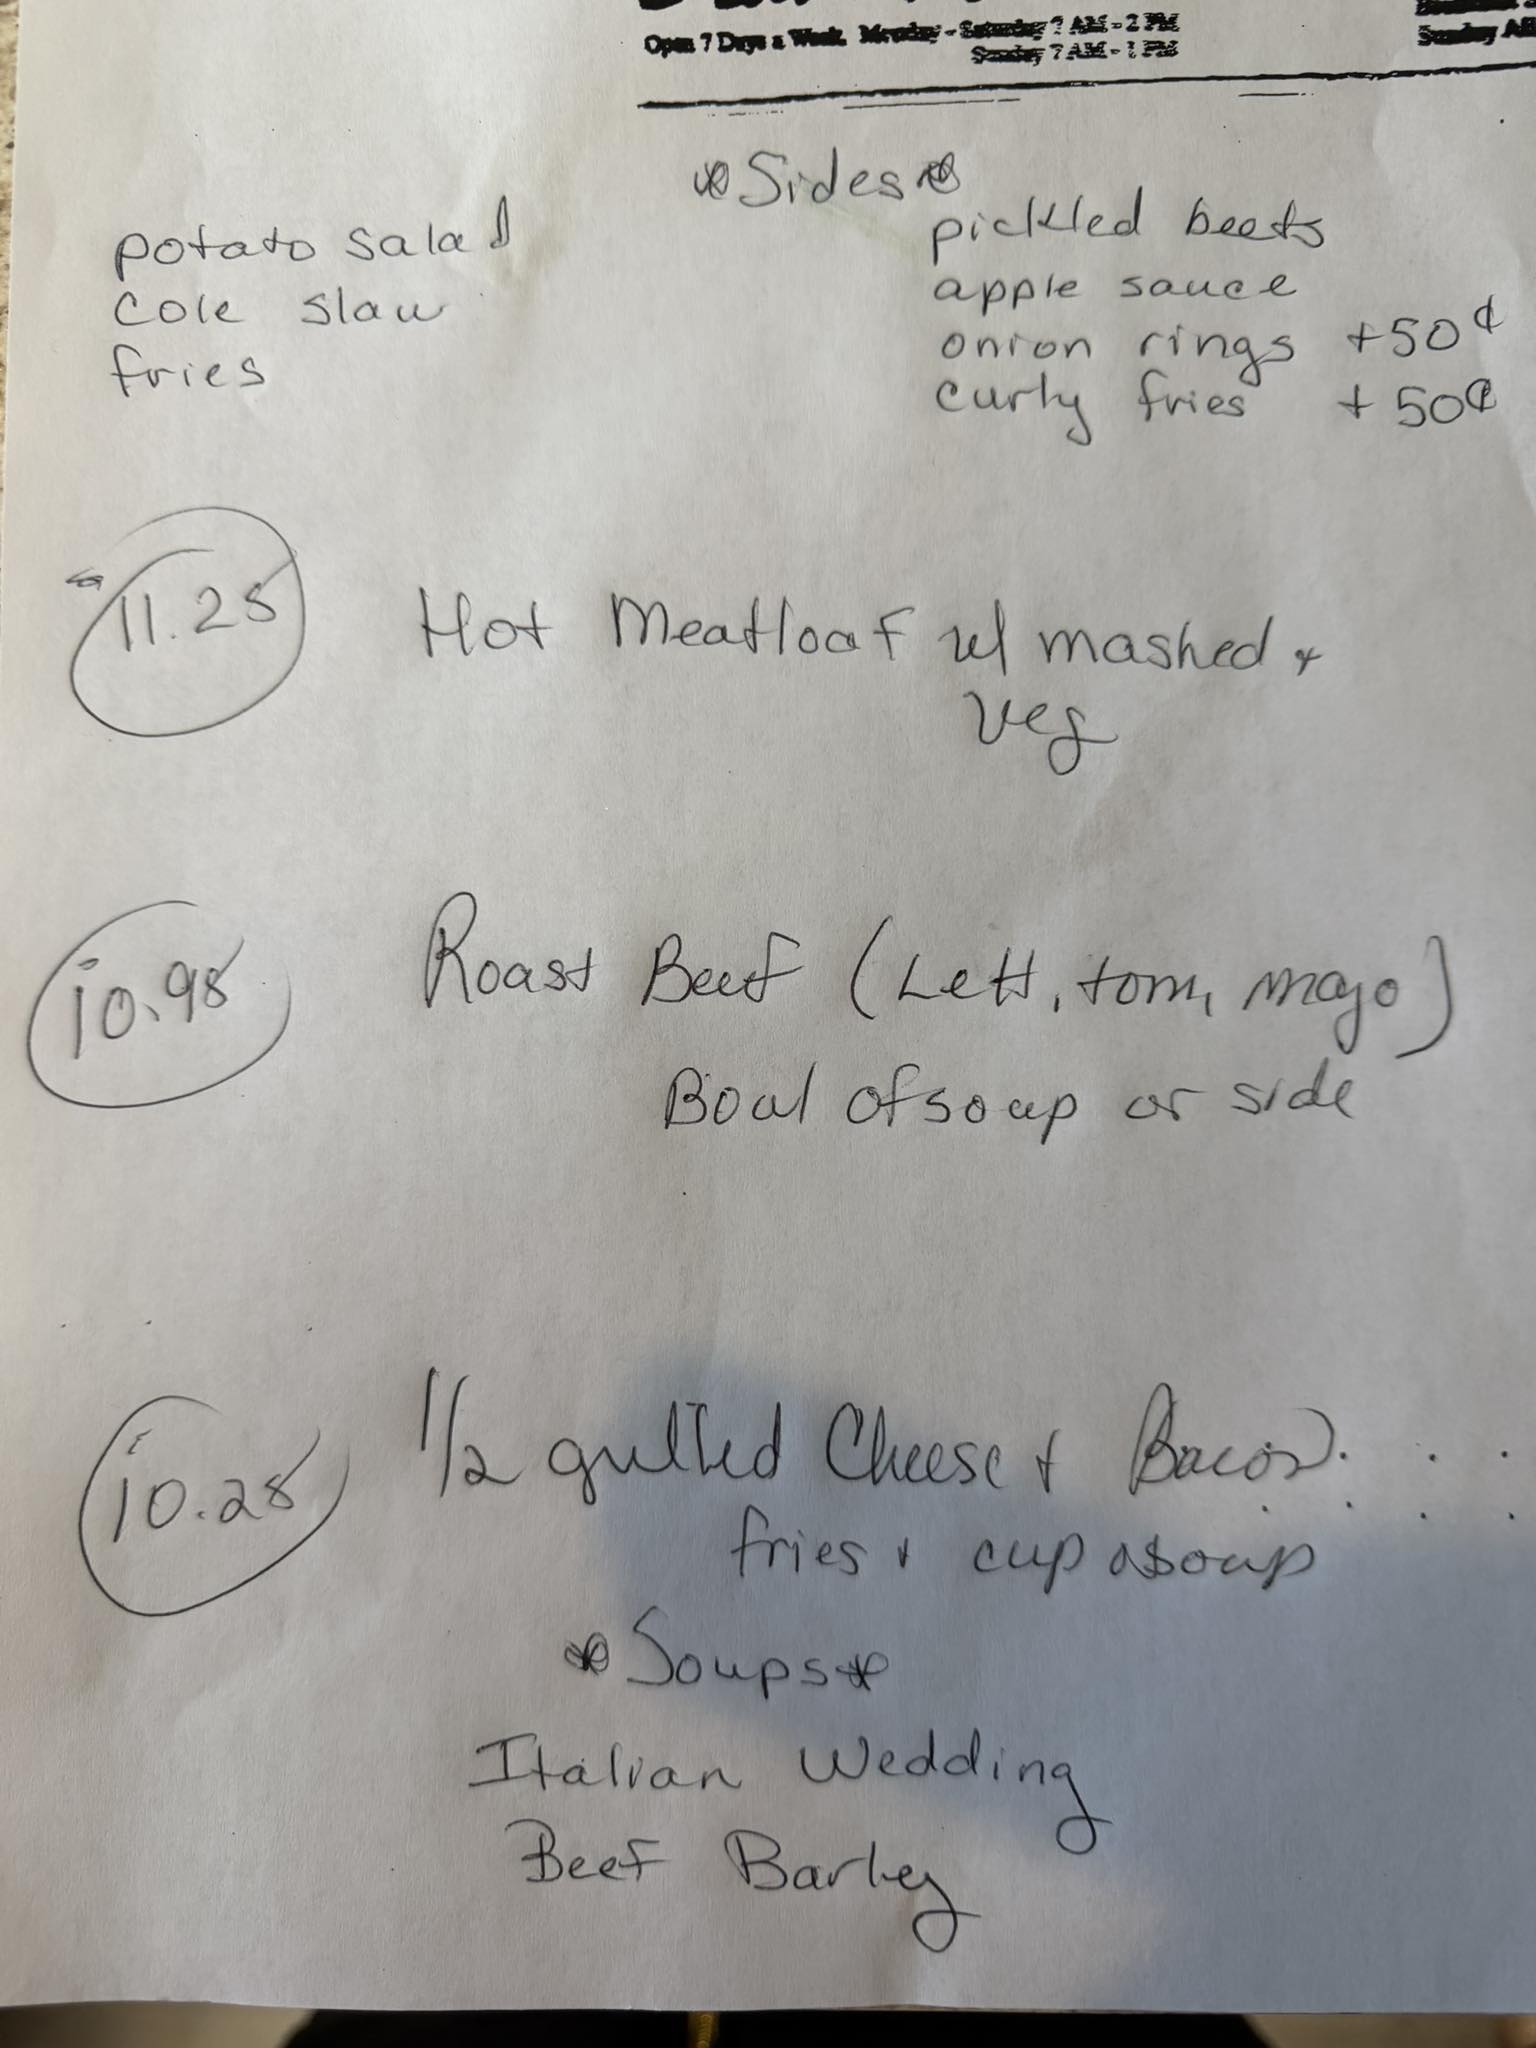 Open 7 Days a Week. Monday - Saturday 7 AM - 2 PM
Sunday 7 AM - 1 PM
Sunday
*Sides*
potato salad
cole slaw
fries
pickled beets
apple sauce
onion rings +50¢
curly fries +50¢
11.25 Hot Meatloaf w/ mashed +
veg
10.95 Roast Beef (Lett, tom, mayo)
Bowl of soup or side
10.25 1/2 grilled Cheese + Bacon
fries + cup o soup
*Soups*
Italian Wedding
Beef Barley